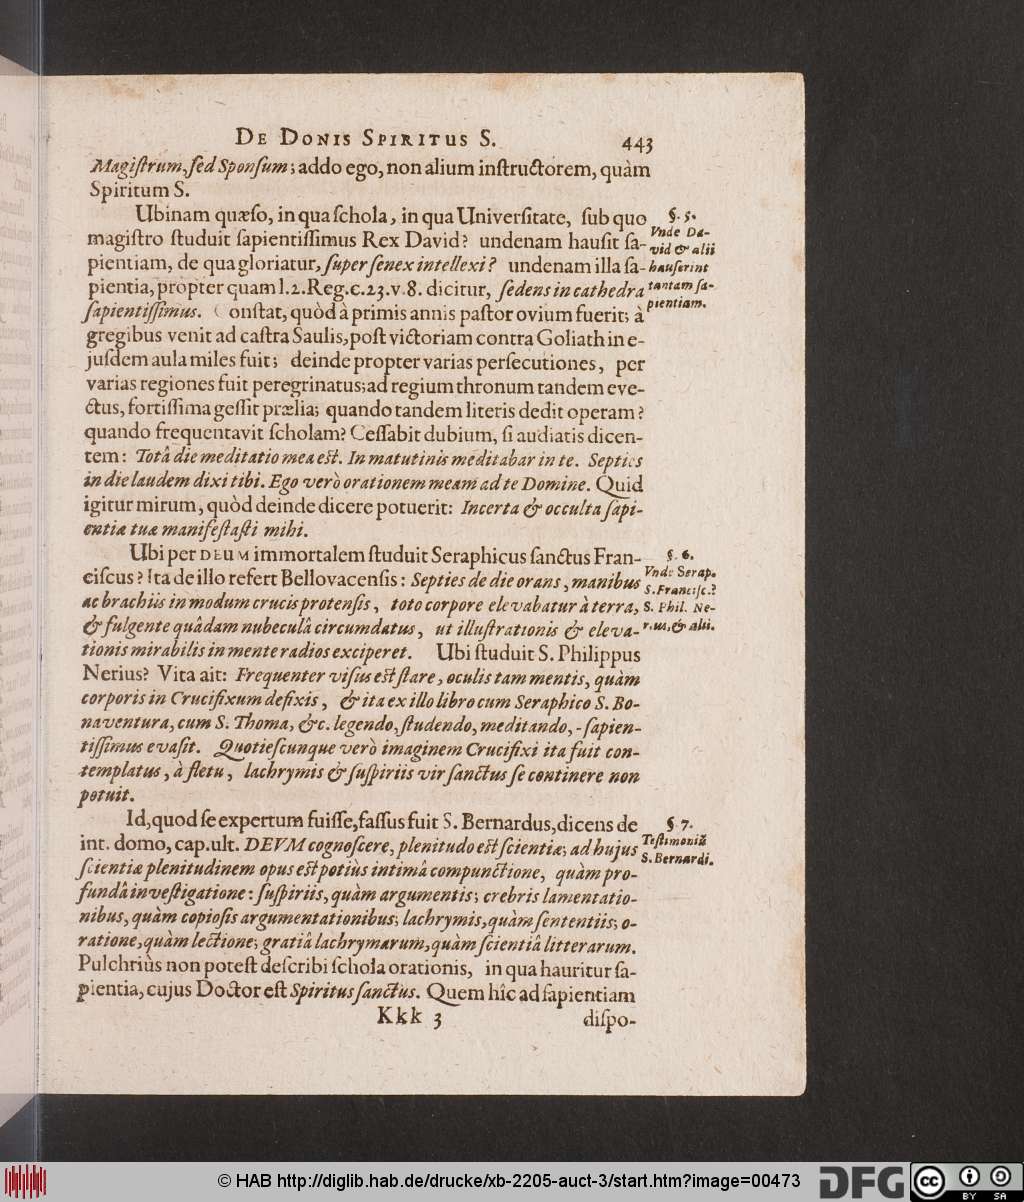 DE DONIS SPIRITUS S. 443
Magiſtrum, ſed Sponſum; addo ego, non alium inſtructorem, quàm
Spiritum S.
Ubinam quæſo, in qua ſchola, in qua Univerſitate, ſub quo
magiſtro ſtuduit ſapientiſſimus Rex David? undenam hauſit ſa-
pientiam, de qua gloriatur, ſuper ſenex intellexi? undenam illa ſa-
pientia, propter quam l.2.Reg.c.23.v.8. dicitur, ſedens in cathedra
ſapientiſſimus. Conſtat, quòd à primis annis paſtor ovium fuerit; à
gregibus venit ad caſtra Saulis, poſt victoriam contra Goliath in e-
juſdem aula miles fuit; deinde propter varias perſecutiones, per
varias regiones fuit peregrinatus; ad regium thronum tandem eve-
ctus, fortiſſima geſſit prælia; quando tandem literis dedit operam?
quando frequentavit ſcholam? Ceſſabit dubium, ſi audiatis dicen-
tem: Totâ die meditatio mea eſt. In matutinis meditabar in te. Septies
in die laudem dixi tibi. Ego verò orationem meam ad te Domine. Quid
igitur mirum, quòd deinde dicere potuerit: Incerta & occulta ſapi-
entiæ tuæ manifeſtaſti mihi.
§. 5.
Vnde Da-
vid & alii
hauſerint
tantam ſa-
pientiam.
Ubi per DEUM immortalem ſtuduit Seraphicus ſanctus Fran-
ciſcus? Ita de illo refert Bellovacenſis: Septies de die orans, manibus
ac brachiis in modum crucis protenſis, toto corpore elevabatur à terra,
& fulgente quâdam nubeculâ circumdatus, ut illuſtrationis & eleva-
tionis mirabilis in mente radios exciperet. Ubi ſtuduit S. Philippus
Nerius? Vita ait: Frequenter viſus eſt ſtare, oculis tam mentis, quàm
corporis in Crucifixum defixis, & ita ex illo libro cum Seraphico S. Bo-
naventura, cum S. Thoma, &c. legendo, ſtudendo, meditando, ſapien-
tiſſimus evaſit. Quotieſcunque verò imaginem Crucifixi ita fuit con-
templatus, à fletu, lachrymis & ſuſpiriis vir ſanctus ſe continere non
potuit.
§. 6.
Vnde Serap.
S. Franciſc.?
S. Phil. Ne-
rius, & alii.
Id, quod ſe expertum fuiſſe, faſſus fuit S. Bernardus, dicens de
int. domo, cap. ult. DEVM cognoſcere, plenitudo eſt ſcientiæ; ad hujus
ſcientiæ plenitudinem opus eſt potiùs intimâ compunctione, quàm pro-
fundâ inveſtigatione: ſuſpiriis, quàm argumentis; crebris lamentatio-
nibus, quàm copioſis argumentationibus; lachrymis, quàm ſententiis; o-
ratione, quàm lectione; gratiâ lachrymarum, quàm ſcientiâ litterarum.
Pulchriùs non poteſt deſcribi ſchola orationis, in qua hauritur ſa-
pientia, cujus Doctor eſt Spiritus ſanctus. Quem hîc ad ſapientiam
§. 7.
Teſtimoniũ
S. Bernardi.
Kkk 3 diſpo-
© HAB http://diglib.hab.de/drucke/xb-2205-auct-3/start.htm?image=00473
DFG
cc BY SA